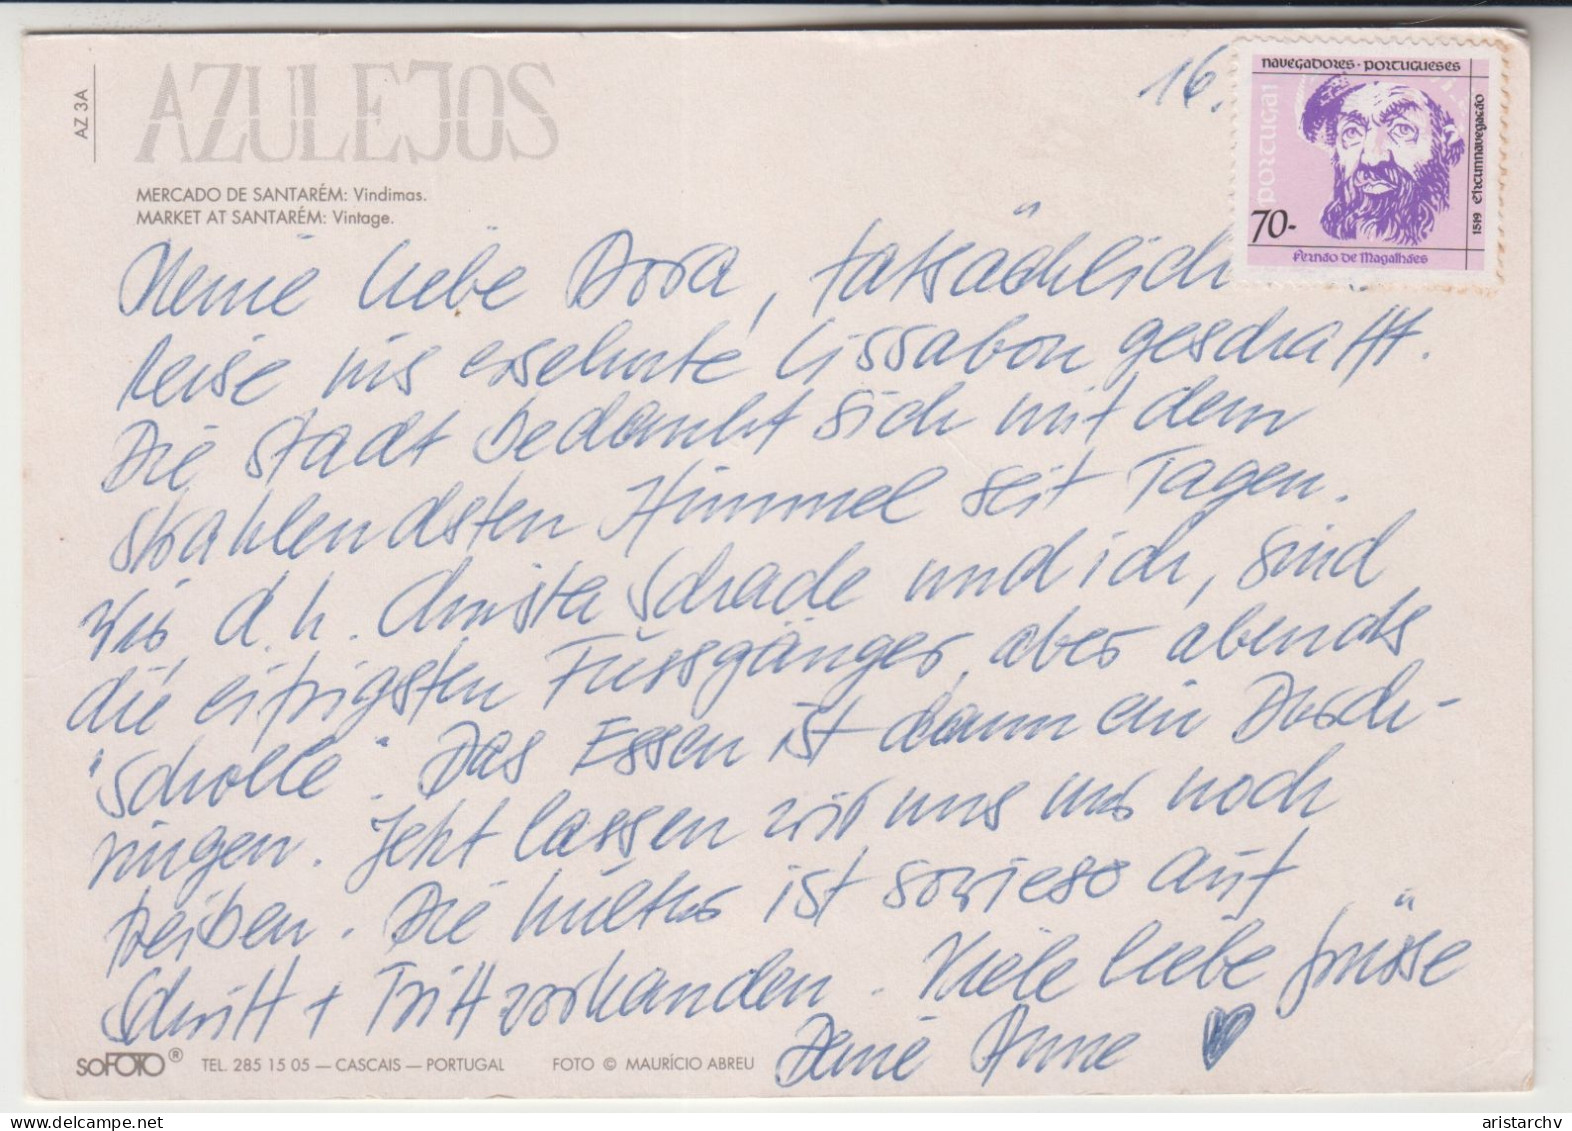 AZ 3A
AZULEJOS
MERCADO DE SANTARÉM: Vindimas.
MARKET AT SANTARÉM: Vintage.
16.
NAVEGADORES · PORTUGUESES
PORTUGAL
1519 CIRCUMNAVEGAÇÃO
70-
Fernão de Magalhães
Meine liebe Dora, tatsächlich
Reise ins ersehnte Lissabon geschafft.
Die Stadt bedankt sich mit dem
strahlendsten Himmel seit Tagen.
Wir d.h. Christa Schade und ich, sind
die eifrigsten Fussgänger, aber abends
"Scholle". Das Essen ist dann ein Durch-
ringen. Jetzt lassen wir uns nur noch
treiben. Die Kultur ist sowieso auf
Schritt + Tritt vorhanden. Viele liebe Grüsse
Deine Anne ♥
SOFOTO® TEL. 285 15 05 — CASCAIS — PORTUGAL FOTO © MAURÍCIO ABREU
delcampe.net
aristarchv